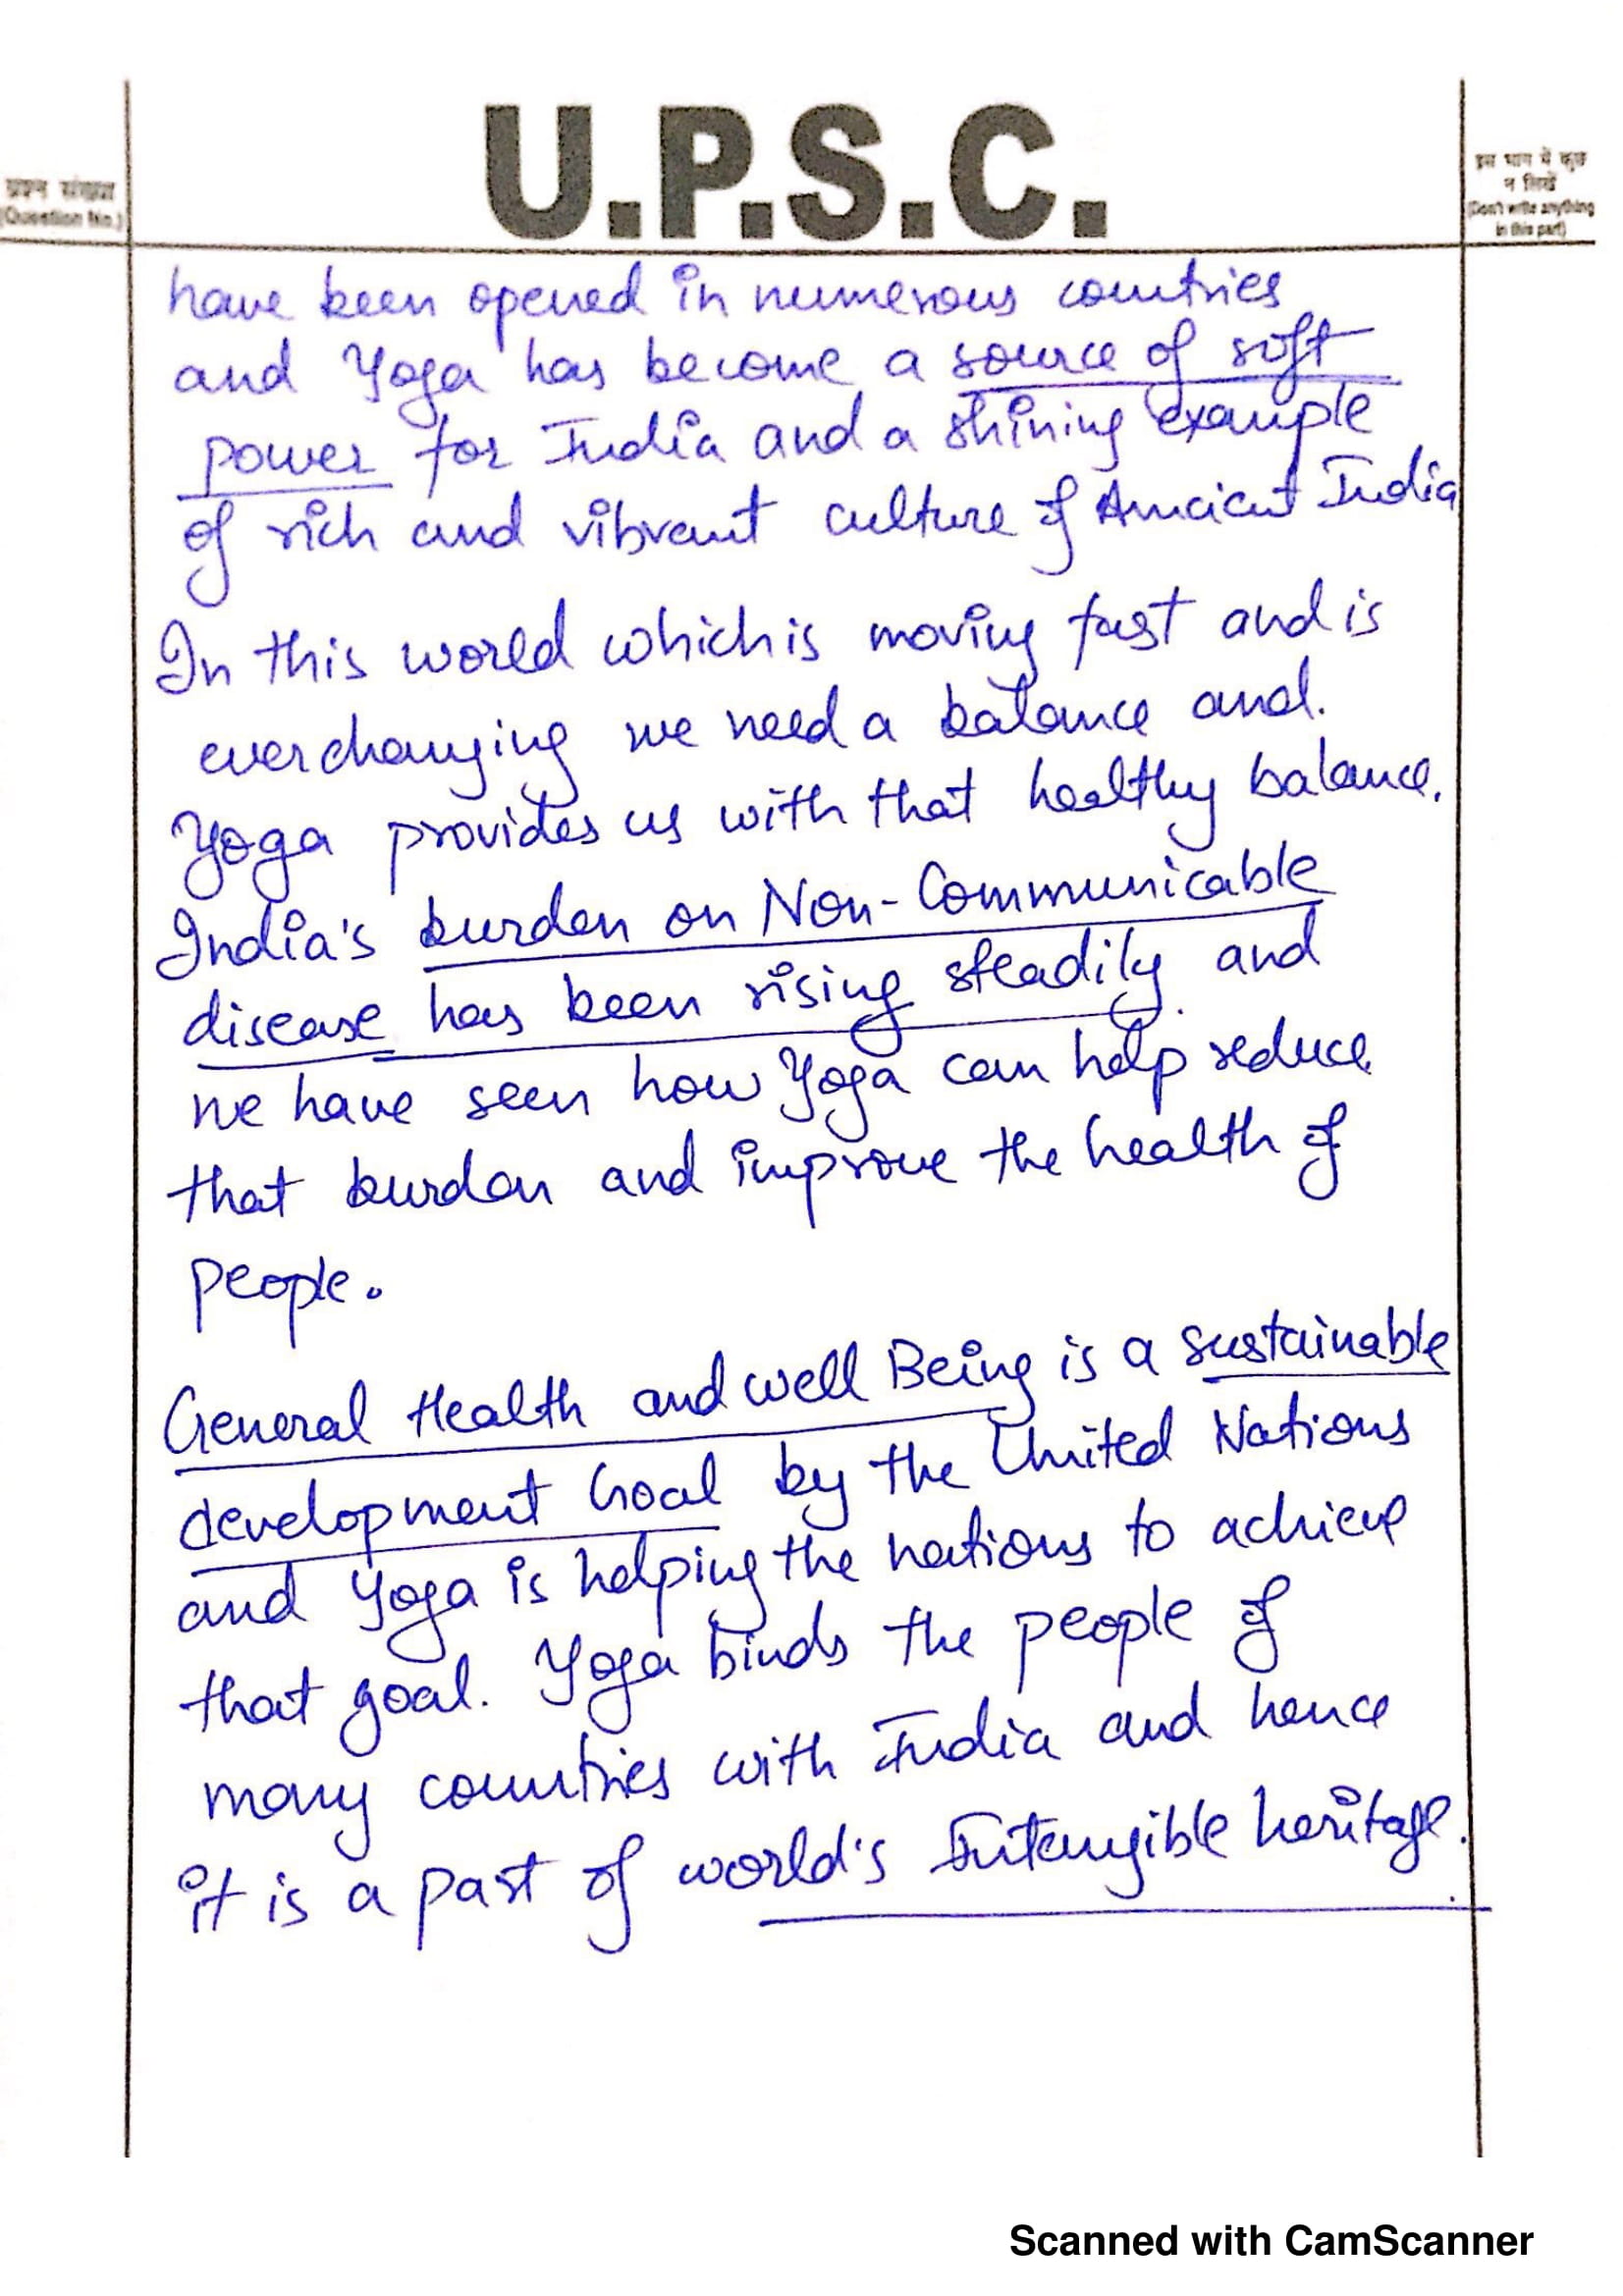 U.P.S.C.
प्रश्न संख्या
(Question No.)
इस भाग में कुछ
न लिखें
(Don't write anything
in this part)
have been opened in numerous countries
and Yoga has become a source of soft
power for India and a shining example
of rich and vibrant culture of Anncient India
In this world which is moving fast and is
everchanging we need a balance and.
Yoga provides us with that healthy balance.
India's burden on Non-Communicable
disease has been rising steadily and
we have seen how Yoga can help reduce
that burden and improve the health of
people.
General Health and well Being is a sustainable
development Goal by the United Nations
and Yoga is helping the nations to achieve
that goal. Yoga binds the people of
many countries with India and hence
it is a part of world's Intangible heritage.
Scanned with CamScanner